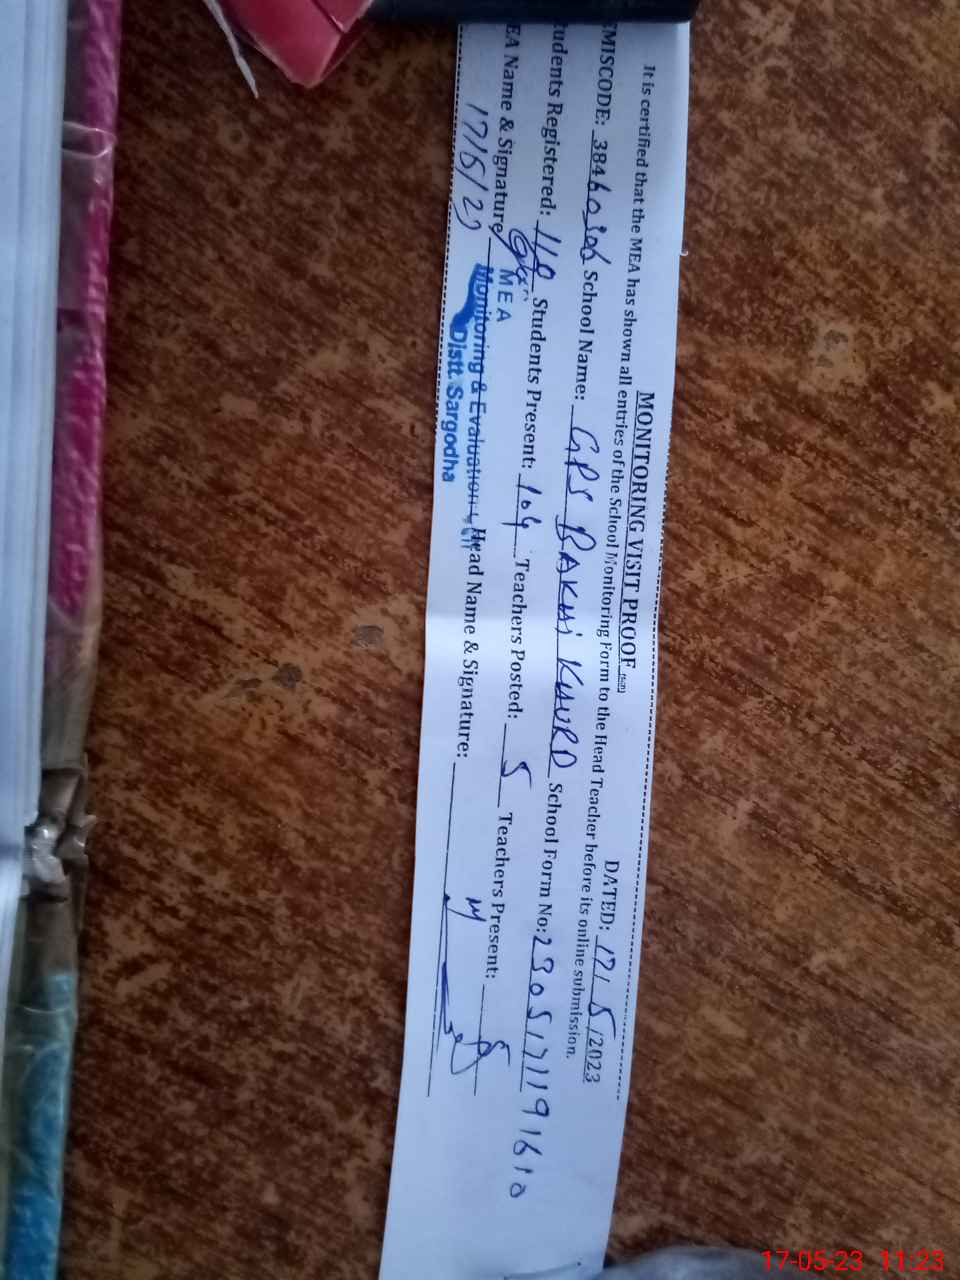 MONITORING VISIT PROOF
DATED: 17/5/2023
It is certified that the MEA has shown all entries of the School Monitoring Form to the Head Teacher before its online submission.
EMISCODE: School Name: GPS RAKHI KHURD School Form No:
udents Registered: Students Present: 104 Teachers Posted: 5 Teachers Present: 5
EA Name & Signature Head Name & Signature:
17/5/23
MEA
Monitoring & Evaluation
Distt. Sargodha
17-05-23 11:23